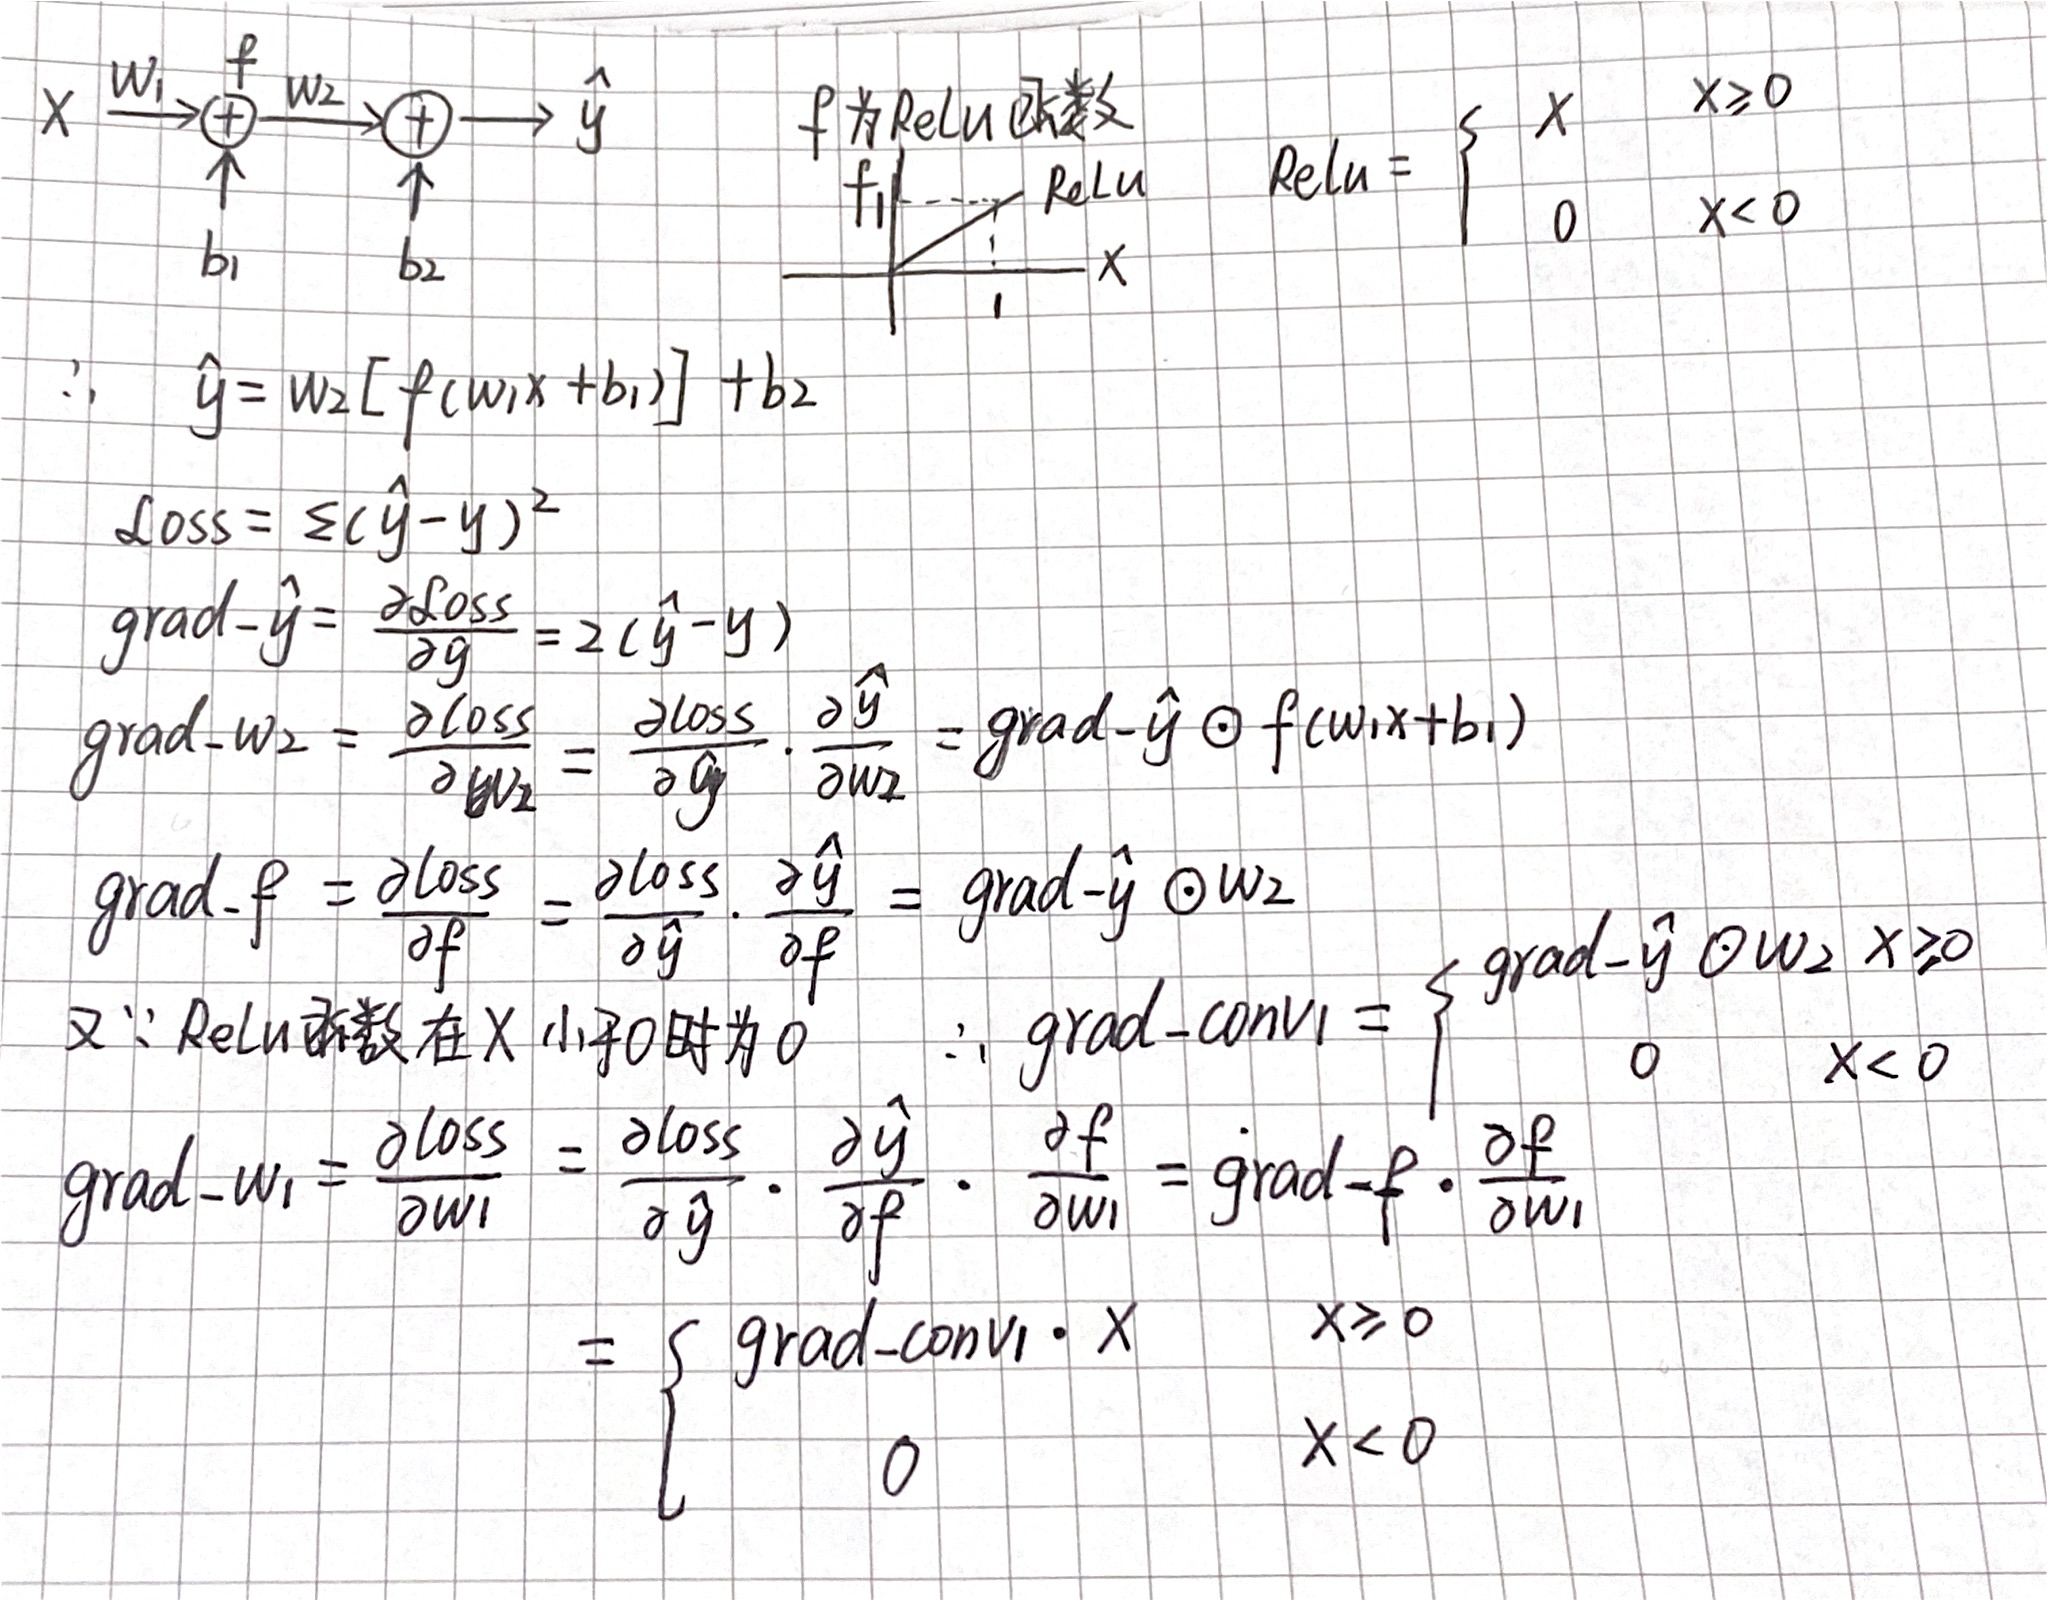 X W1 f W2 ŷ
b1 b2
f为ReLu函数
f 1 ReLu X 1
Relu = { X X≥0
0 X<0
∴ ŷ = W2[f(W1X+b1)] + b2
Loss = Σ(ŷ-y)²
grad-ŷ = ∂Loss/∂ŷ = 2(ŷ-y)
grad-W2 = ∂Loss/∂W2 = ∂Loss/∂ŷ · ∂ŷ/∂W2 = grad-ŷ ⊙ f(W1X+b1)
grad-f = ∂Loss/∂f = ∂Loss/∂ŷ · ∂ŷ/∂f = grad-ŷ ⊙ W2
又∵ ReLu函数在X小于0时为0 ∴ grad-conv1 = { grad-ŷ ⊙ W2 X≥0
0 X<0
grad-W1 = ∂Loss/∂W1 = ∂Loss/∂ŷ · ∂ŷ/∂f · ∂f/∂W1 = grad-f · ∂f/∂W1
= { grad-conv1 · X X≥0
0 X<0